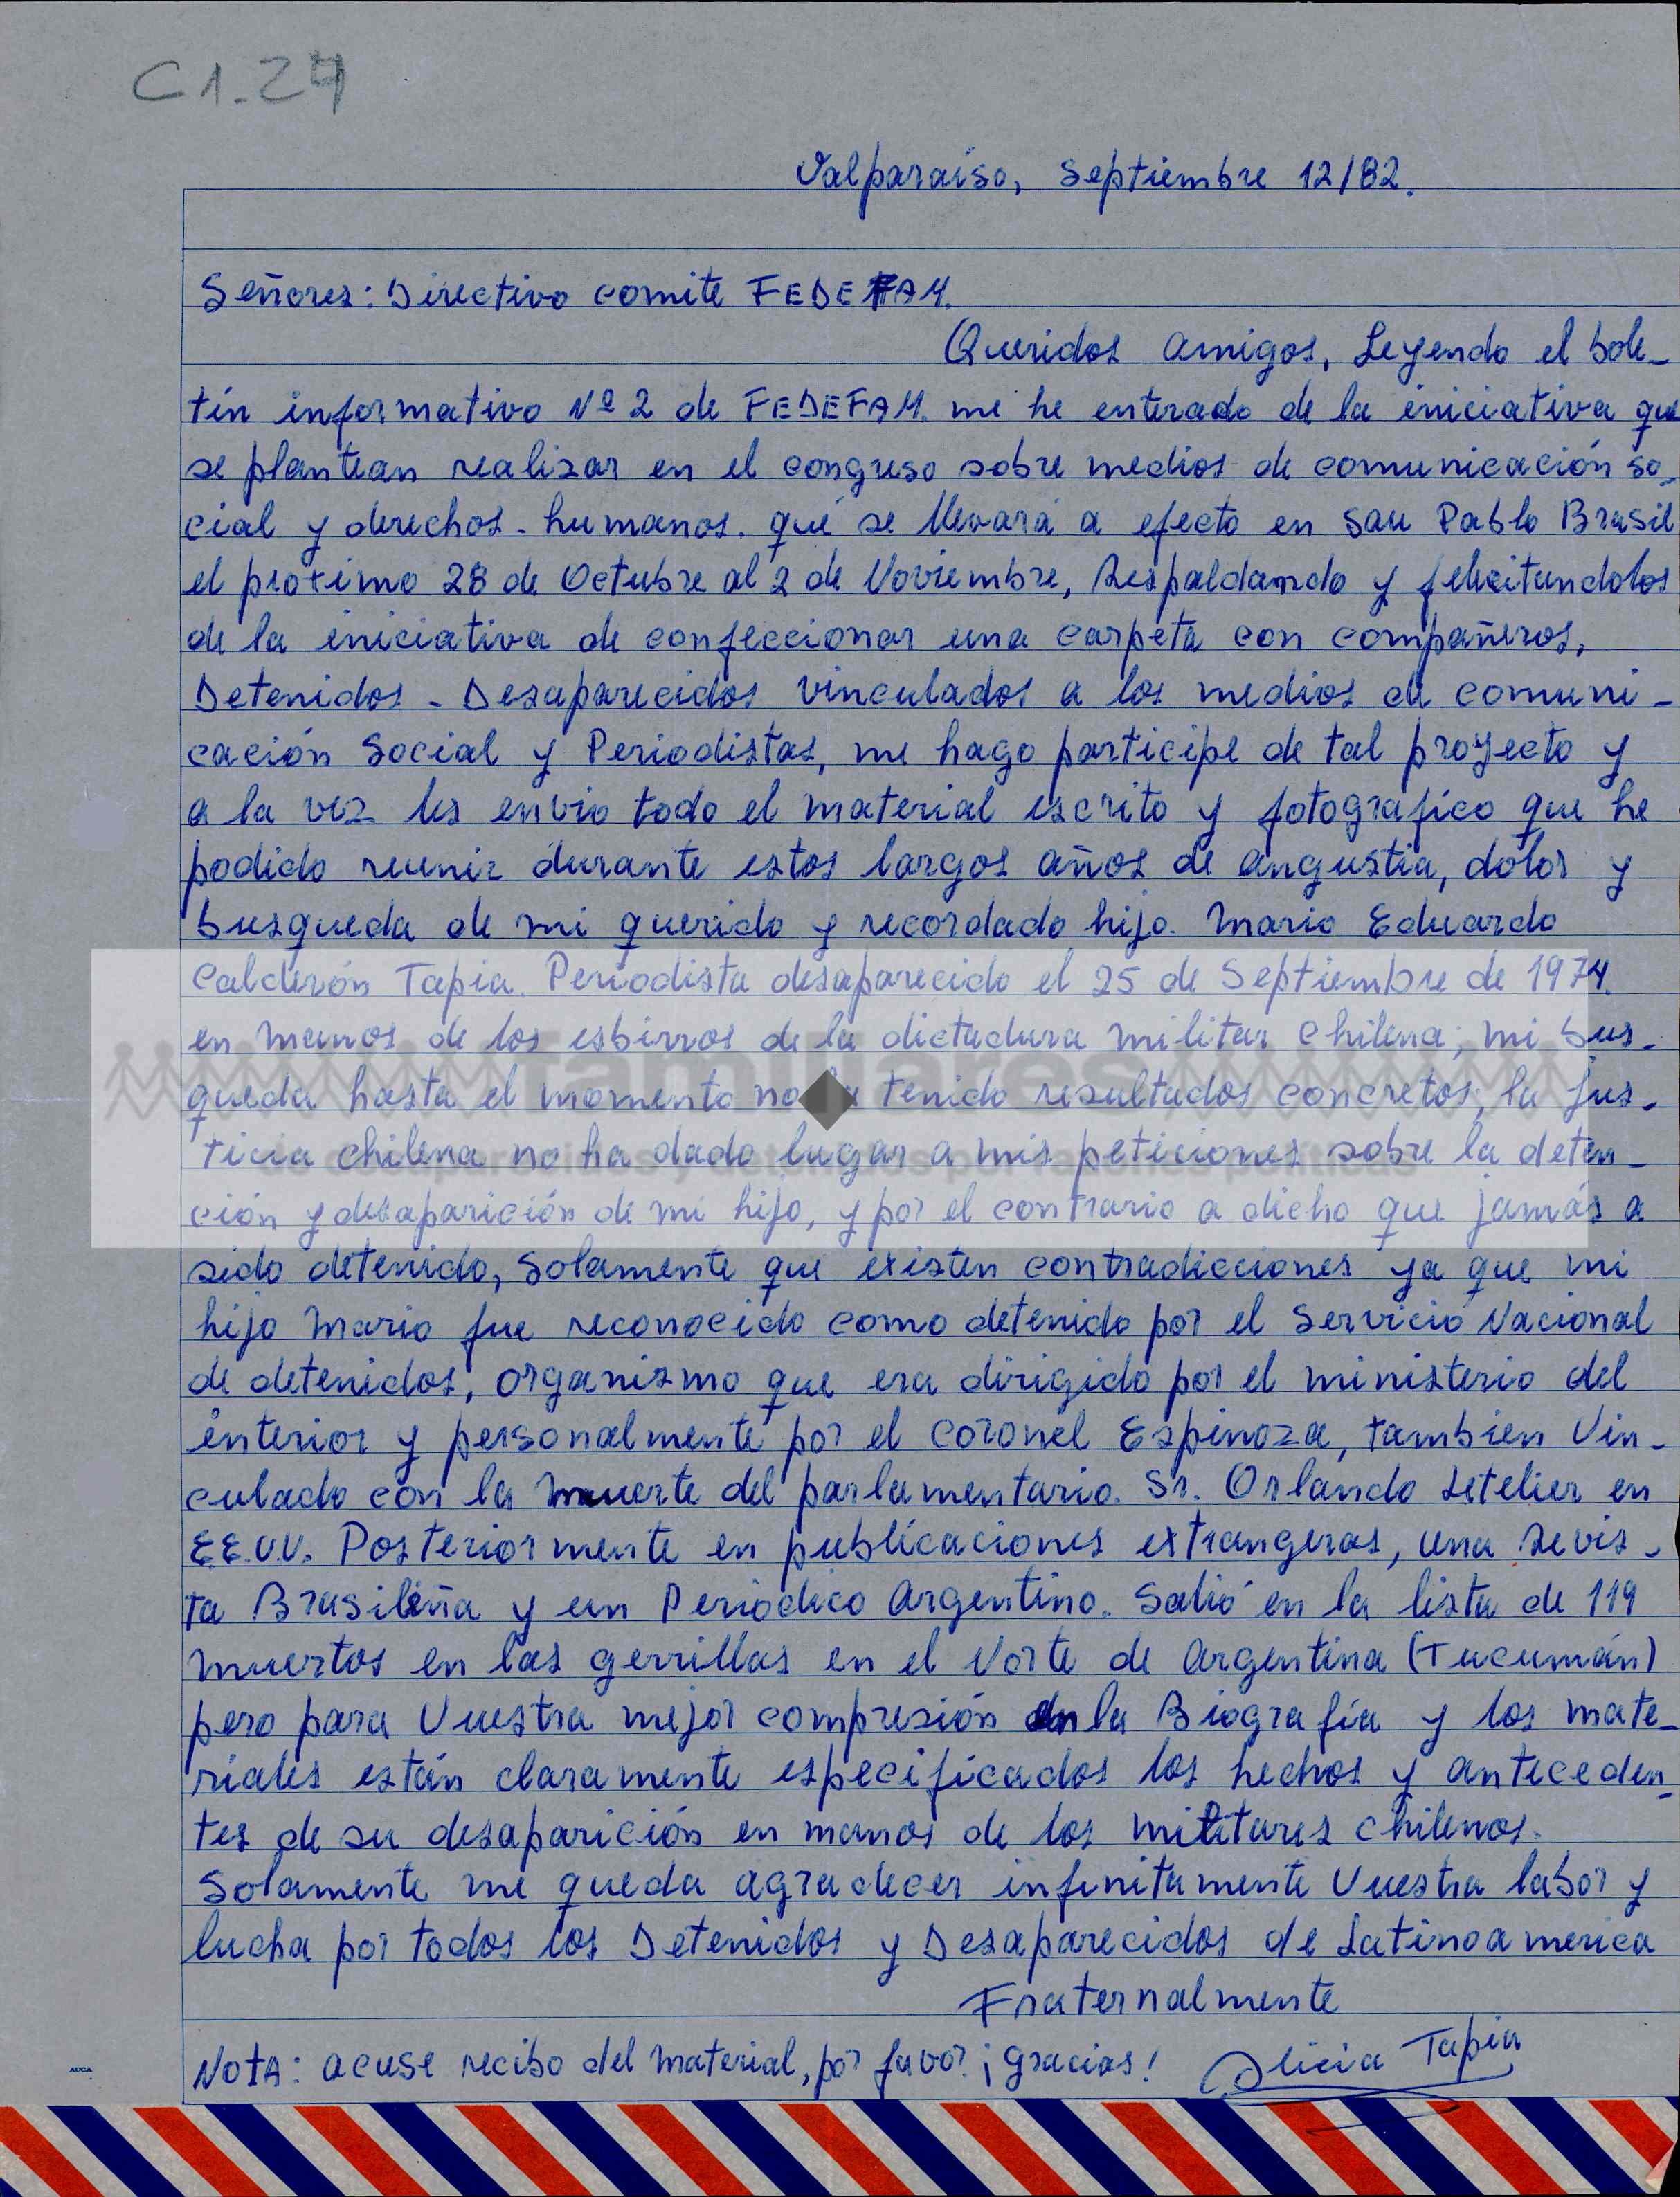 C1.27
Valparaiso, Septiembre 12/82.
Señores: Directivo comite FEDEFAM.
Queridos amigos, Leyendo el bole-
tín informativo Nº 2 de FEDEFAM. me he enterado de la iniciativa que
se plantean realizar en el congreso sobre medios de comunicación so-
cial y derechos-humanos. que se llevará a efecto en San Pablo Brasil
el proximo 28 de Octubre al 2 de Noviembre, Respaldando y felicitandolos
de la iniciativa de confeccionar una carpeta con compañeros,
Detenidos-Desaparecidos vinculados a los medios de comuni-
cación Social y Periodistas, me hago participe de tal proyecto y
a la vez les envio todo el material escrito y fotografico que he
podido reunir durante estos largos años de angustia, dolor y
busqueda de mi querido y recordado hijo. Mario Eduardo
Calderón Tapia. Periodista desaparecido el 25 de Septiembre de 1974.
en manos de los esbirros de la dictadura militar Chilena; mi bus-
queda hasta el momento no ha tenido resultados concretos; la jus-
ticia chilena no ha dado lugar a mis peticiones sobre la deten-
ción y desaparición de mi hijo, y por el contrario a dicho que jamás a
sido detenido, Solamente que existen contradicciones ya que mi
hijo Mario fue reconocido como detenido por el Servicio Nacional
de detenidos, organismo que era dirigido por el ministerio del
interior y personalmente por el coronel Espinoza, tambien Vin-
culado con la muerte del parlamentario. Sr. Orlando Letelier en
EE.UU. Posteriormente en publicaciones extrangeras, una Revis-
ta Brasileña y un Periodico Argentino. Salió en la lista de 119
muertos en las gerrillas en el Norte de Argentina (Tucumán)
pero para Vuestra mejor compresión en la Biografía y los mate-
riales están claramente especificados los hechos y anteceden-
tes de su desaparición en manos de los militares chilenos.
Solamente me queda agradecer infinitamente Vuestra labor y
lucha por todos los Detenidos y Desaparecidos de Latinoamerica
Fraternalmente
NOTA: acuse recibo del material, por favor ¡gracias!
Alicia Tapia
AUCA
familiares